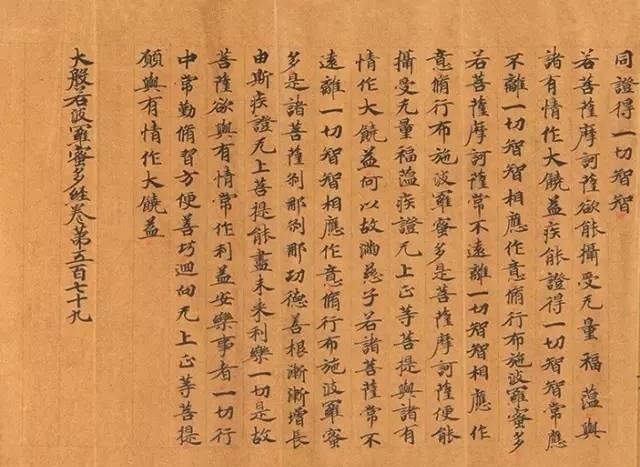 同證得一切智智
若菩薩摩訶薩欲能攝受无量福蕰與
諸有情作大饒益疾能證得一切智智常應
不離一切智智相應作意脩行布施波羅蜜多
若菩薩摩訶薩常不遠離一切智智相應作
意脩行布施波羅蜜多是菩薩摩訶薩便能
攝受无量福蕰疾證无上正等菩提與諸有
情作大饒益何以故滿慈子若諸菩薩常不
遠離一切智智相應作意脩行布施波羅蜜
多是諸菩薩剎那剎那功德善根漸漸增長
由斯疾證无上菩提能盡未來利樂一切是故
菩薩欲與有情常作利益安樂事者一切行
中常勤脩習方便善巧迴向无上正等菩提
願與有情作大饒益
大般若波羅蜜多經卷第五百七十九